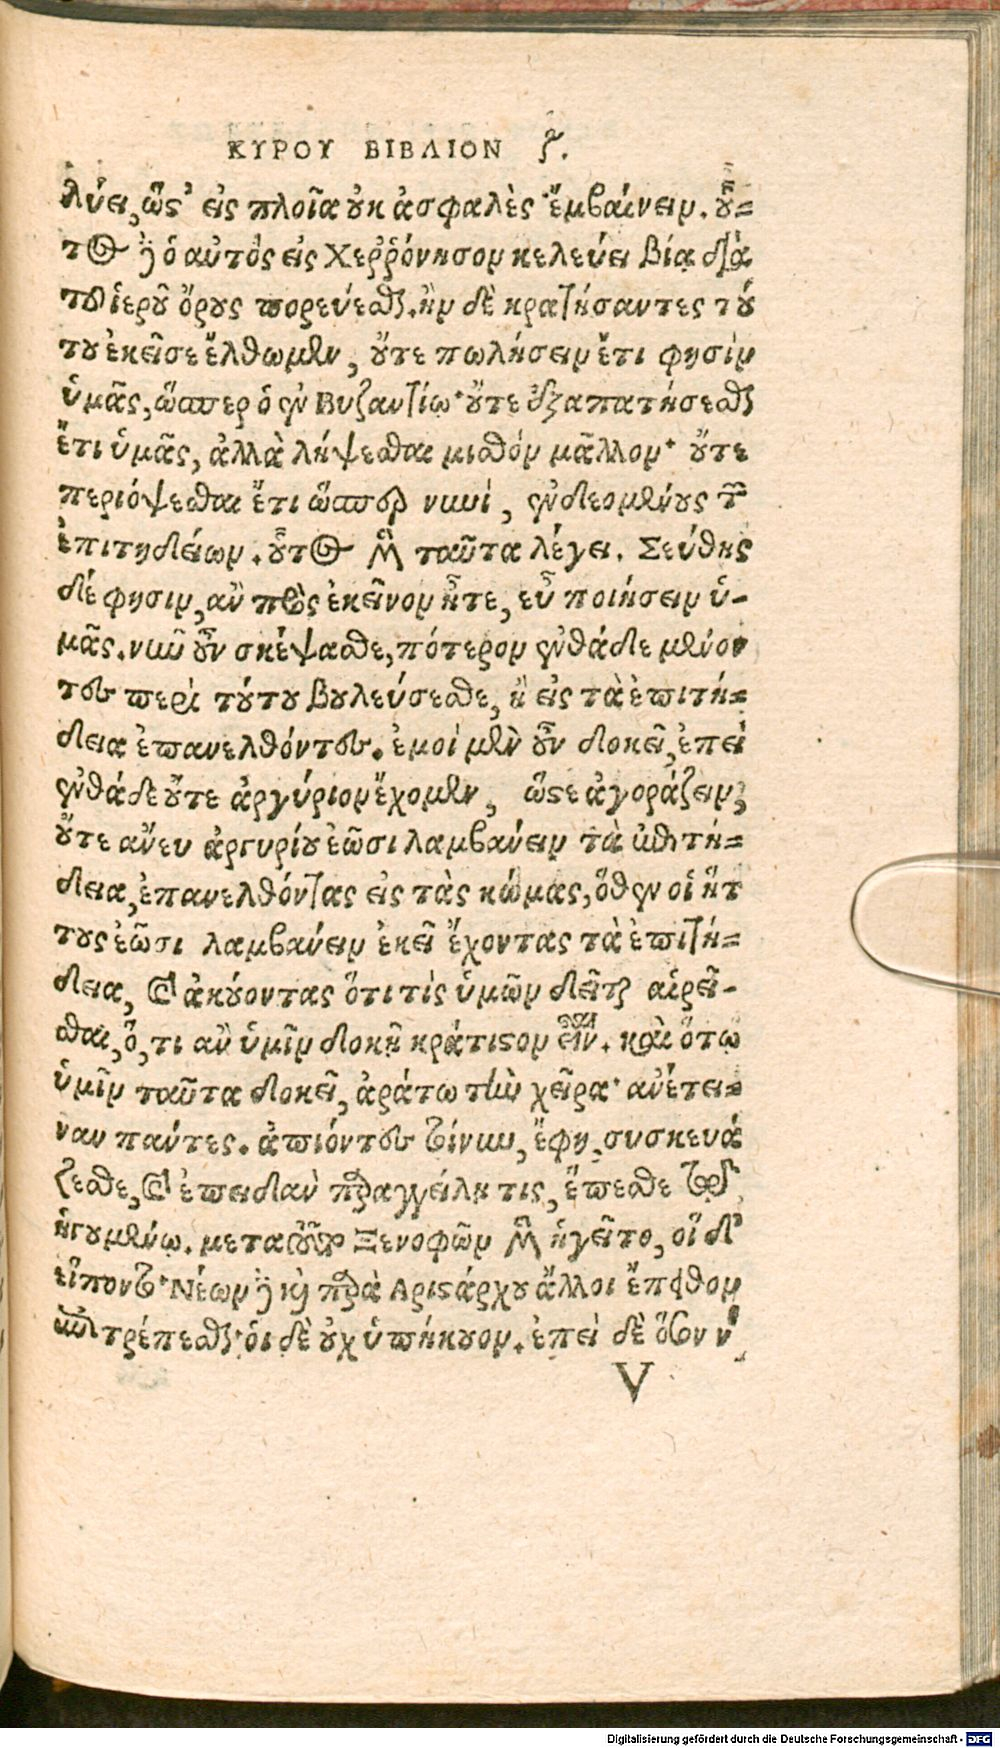 ΚΥΡΟΥ ΒΙΒΛΙΟΝ ϛ.
λύει, ὥϛ' εἰς πλοῖα οὐκ ἀσφαλὲς ἐμβαίνειν. οὗ-
τος δὲ ὁ αὐτὸς εἰς Χεῤῥόνησον κελεύει βίᾳ διὰ
τοῦ ἱεροῦ ὄρους πορεύεσθαι. ἢν δὲ κρατήσαντες τού
του ἐκεῖσε ἔλθωμεν, οὔτε πωλήσειν ἔτι φησὶν
ὑμᾶς, ὥσπερ ὁ ἐν Βυζαντίῳ· οὔτε ἐξαπατήσεσθαι
ἔτι ὑμᾶς, ἀλλὰ λήψεσθαι μισθὸν μᾶλλον· οὔτε
περιόψεσθαι ἔτι ὥσπερ νυνὶ, ἐνδεομένους τῶν
ἐπιτηδείων. οὗτος μὲν ταῦτα λέγει. Σεύθης
δέ φησιν, ἂν πρὸς ἐκεῖνον ἦτε, εὖ ποιήσειν ὑ-
μᾶς. νῦν οὖν σκέψασθε, πότερον ἐνθάδε μένον
τες περὶ τούτου βουλεύσεσθε, ἢ εἰς τὰ ἐπιτή-
δεια ἐπανελθόντες. ἐμοὶ μὲν οὖν δοκεῖ, ἐπεὶ
ἐνθάδε οὔτε ἀργύριον ἔχομεν, ὥϛε ἀγοράζειν,
οὔτε ἄνευ ἀργυρίου ἐῶσι λαμβάνειν τὰ ἐπιτή-
δεια, ἐπανελθόντας εἰς τὰς κώμας, ὅθεν οἱ ἥτ
τους ἐῶσι λαμβάνειν ἐκεῖ ἔχοντας τὰ ἐπιτή-
δεια, καὶ ἀκούοντας ὅτι τὶς ὑμῶν δεῖται αἱρεῖ-
σθαι, ὅ, τι ἂν ὑμῖν δοκῇ κράτιϛον εἶναι. καὶ ὅτῳ
ὑμῖν ταῦτα δοκεῖ, ἀράτω τὴν χεῖρα· ἀνέτει-
ναν πάντες. ἀπιόντες τοίνυν, ἔφη, συσκευά
ζεσθε, καὶ ἐπειδὰν παραγγείλῃ τις, ἕπεσθε τῷ
ἡγουμένῳ. μετὰ ταῦτα Ξενοφῶν μὲν ἡγεῖτο, οἱ δ'
εἵποντο· Νέων δὲ καὶ παρὰ Αριϛάρχου ἄλλοι ἔπειθον
ἀποτρέπεσθαι· οἱ δὲ οὐχ ὑπήκουον. ἐπεὶ δὲ ὅσον
V
Digitalisierung gefördert durch die Deutsche Forschungsgemeinschaft - DFG